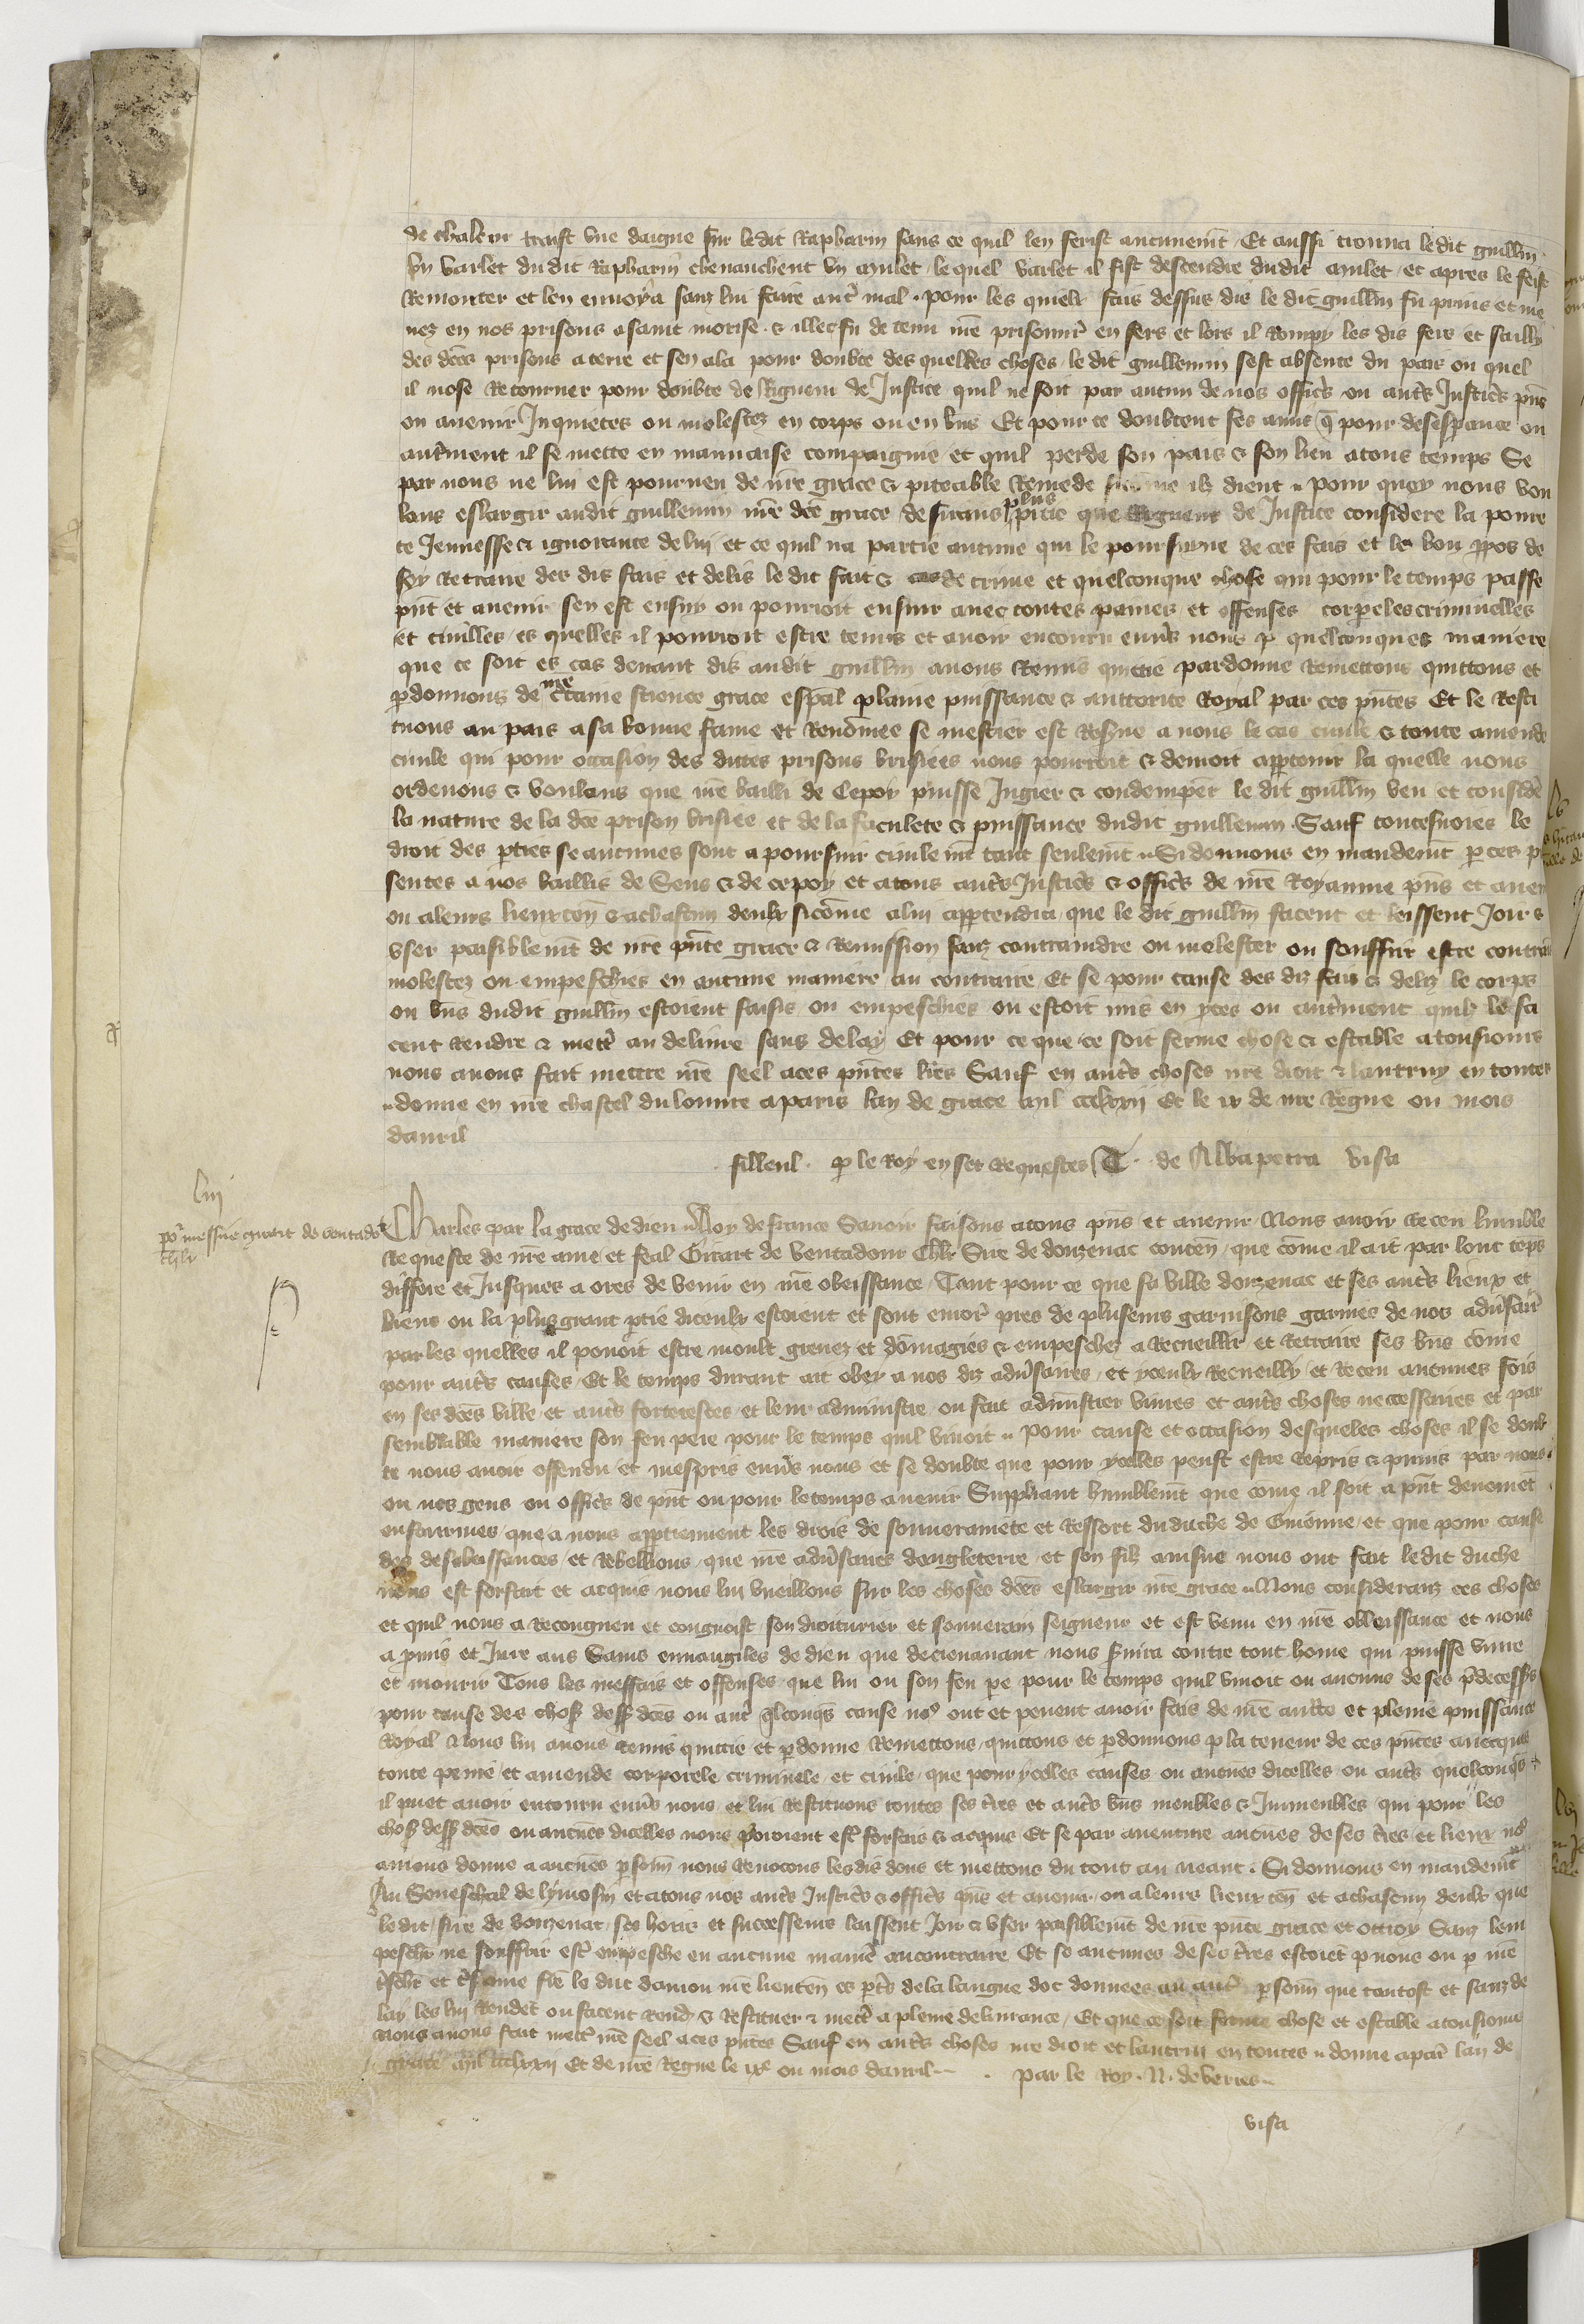 de chaleur traist une dague sur ledit Rapharin sans ce quil len ferist aucunemt Et aussi trouva ledit guillm
un varlet dudit Rapharin chevauchent un mulet lequel varlet il fist descendre dudit mulet et apres le feist
Remonter et len envoya sanz lui faire autre mal pour les quielx fais dessus dis le dit guillm fu prins et me
nez en nos prisons a saint morise & illec fu detenu me prisonnr en fers et lors il Rompy les dis fers et sailly
des dces prisons a terre et sen ala pour doubte des quelles choses le dit guillemin sest absente du pais ou quel
il nose Retourner pour doubte de Rigueur de Justice quil ne soit par aucun de nos offices ou autres Justices pns
ou avenir Inquietes ou molestez en corps ou en bns Et pour ce doubtent ses amis q pour desesperance ou
autrment il se mette en mauvaise compaignie et quil perde son pais & son bien a tous temps Se
par nous ne lui est pourveu de nre grace & piteable Remede si come ilz dient pour quoy nous vou
lans eslargir audit guillemin nre dce grace desirans plus pitie que Rigueur de Justice considere la poure
te Jeunesse & ignorance de lui et ce quil na partie aucune qui le poursuyve de ces fais et le bon ppos de
soy Retraire des dis fais et delis le dit fait & cas de crime et quelconque chose qui pour le temps passe
pnt et avenir sen est ensuy ou pourroit ensuir avec toutes paines et offenses corpeles criminelles
et civilles es quelles il pourroit estre tenus et avoir encouru envrs nous p quelconques maniere
que ce soit es cas devant dis audit guillm avons Remis quittie pardonne Remettons quittons et
pdonnons de nre ctaine science grace espal plaine puissance & auttorite Royal par ces pntes Et le Resti
tuons au pais a sa bonne fame et Renomee se mestier est Reserve a nous le cas civile & toute amende
civile qui pour occasion des dittes prisons brisiees nous pourroit & devroit appartenir la quelle nous
ordenons & voulans que nre bailli de Cepoy puisse Jugier & condempner le dit guillm veu et considere
la nature de la dce prison brisiee et de la faculete & puissance dudit guillemin Sauf toutesvoies le
droit des pties se aucunes sont a poursuir civilemt tant seulemt Si donnons en mandemt p ces p
sentes a nos baillis de Sens & de cepoy et a tous autres Justices & offices de nre Royaume pns et aven
ou a leurs lieuxten & a chascun deulx sicome a lui appartendra que le dit guillm facent et laissent Joir &
user paisiblemt de nre pnte grace & Remission sanz contraindre ou molester ou souffrir estre contrai
molestez ou empeschies en aucune maniere au contraire Et se pour cause des diz fais & deliz le corps
ou bns dudit guillm estoient saisis ou empeschies ou estoit mis en pces ou autrment quilz le fa
cent Rendre & mettr au delivre sans delay Et pour ce que ce soit ferme chose & estable a tousiours
nous avons fait mettre nre seel a ces pntes lres Sauf en autres choses nre droit & lautruy en toutes
donne en nre chastel du louvre a paris lan de grace mil ccclxxij Et le ix de nre Regne ou mois
davril
filleul p le Roy en ses Requestes T de Albapetra visa
liij
po messire girart de ventadr
chlr
Charles par la grace de dieu Roy de france Savoir faisons a tous pns et avenir Nous avoir Receu lumble
Requeste de nre ame et feal Girart de Ventadour Chlr Sire de donzenac conten que come il ait par lonc teps
differe et Jusques a ores de venir en nre obeissance Tant pour ce que sa ville donzenac et ses autrs lieux et
biens ou la plus grant ptie diceulx estoient et sont encor pres de pluseurs garnisons garnies de noz advsair
par les quelles il povoit estre moult grevez et domagies & empeschez a Recueillir et Retraire ses bns come
pour autrs causes Et le temps durant ait obey a nos diz advsaires et yceulx Recueilly et Receu aucunes fois
en ses dces ville et autrs forteresces et leur administre ou fait administrer vivres et autrs choses neccessaires et par
semblable maniere son feu pere pour le temps quil vivoit Pour cause et occasion desqueles choses il se doub
te nous avoir offendu et mespris envrs nous et se doubte que pour ycelles peust estre Repris & punis par nous
ou nos gens ou offices de pnt ou pour le temps avenir Suppliant humblemt que come il soit a pnt deuement
enfourmes que a nous apptiennent les drois de souverainete et Ressort du duche de Guienne et que pour cause
des desobeissances et Rebellions que nre advsaires dengleterre et son filz ainsne nous ont fait ledit duche
nous est forfait et acquis nous lui vueillons sur les choses dces eslargir nre grace Nous consideranz ces choses
et quil nous a Recongneu et congnoist son droiturier et souverain seigneur et est venu en nre obbeissance et nous
a pmis et Jure aus Sains euvangiles de dieu que doresenavant nous svira contre tout home qui puisse vivre
et mourir Tous les meffais et offenses que lui ou son feu pe pour le temps quil vivoit ou aucuns de ses pdecesss
pour cause des chos dess dces ou autr qlconqs cause nos ont et pevent avoir fais de nre autte et pleine puissance
Royal Nous lui avons remis quittie et pdonne Remettons quittons et pdonnons p la teneur de ces pntes avecques
toute peine et amende corporele criminele et civile que pour ycelles causes ou aucunes dicelles ou autrs quelconqs
il puet avoir encouru envrs nous et lui Restituons toutes ses tres et autrs bns meubles & Inmeubles qui pour les
chos dess dces ou aucunes dicelles nous povoient estr forfais & acquis Et se par aventure aucunes de ses tres et lieux nos
avions donne a aucunes psonn nous Revocons lesdis dons et mettons du tout au neant Si donnons en mandemt
Au Seneschal de lymosin et a tous nos autrs Justices & offices pns et avenir ou a leurs lieux ten et a chascun deulx que
ledit sire de donzenac ses hoirs et successeurs laissent Joir & user paisiblemt de nre pnte grace et ottroy Sanz lem
pescher ne souffrir estr empesche en aucune manier au contraire Et se aucunes de ses tres estoiet p nous ou p nre
tschr et tsame fre le duc danjou nre lieuten es pties de la langue doc donnees a autr psonn que tantost et sanz de
lay les lui Rendet ou facent rendr & Restituer & mettr a pleine delivrance Et que ce soit ferme chose et estable a tousiours
Nous avons fait mettr nre seel a ces pntes Sauf en autrs choses nre droit et lautrui en toutes donne a par lan de
grace mil ccclxxij Et de nre Regne le ixe ou mois davril
par le Roy N de verres
visa